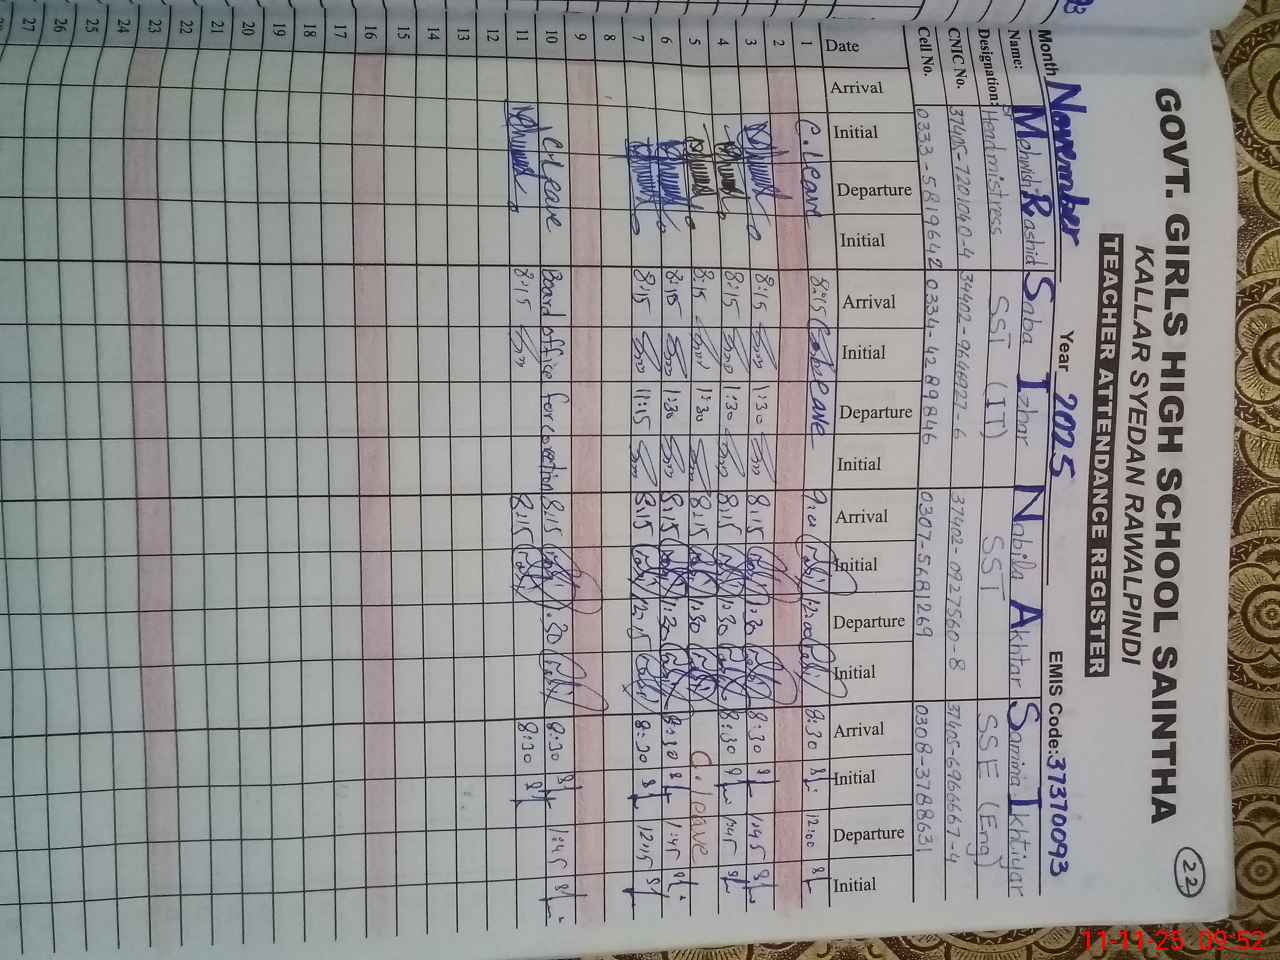 22
GOVT. GIRLS HIGH SCHOOL SAINTHA
KALLAR SYEDAN RAWALPINDI
TEACHER ATTENDANCE REGISTER
Month November Year 2025 EMIS Code: 37370093
Name: Mehwish Rashid Saba Izhar Nabila Akhtar Samina Ikhtiyar
Designation: Headmistress SST (IT) SST SSE (Eng)
CNIC No. 37405-7201060-4 34402-9646927-6 37402-0927560-8 37405-6966667-4
Cell No. 0333-5819642 0334-4289846 0307-5681269 0308-3788631
Date Arrival Initial Departure Initial Arrival Initial Departure Initial Arrival Initial Departure Initial Arrival Initial Departure Initial
1 C.Leave 8:45 Leave 9:0 12:00 8:30 12:00
2
3 8:15 1:30 8:15 1:30 8:30 1:45
4 8:15 1:30 8:15 1:30 8:30 1:45
5 8:15 1:30 8:15 1:30 C.leave
6 8:15 1:30 8:15 1:30 8:30 1:45
7 8:15 11:15 8:15 12:15 8:30 12:15
8
9
10 C.Leave Board office for 8:15 1:30 8:30 1:45
11 8:15 8:15 8:30
12
13
14
15
16
17
18
19
20
21
22
23
24
25
26
27
11-11-25 09:52